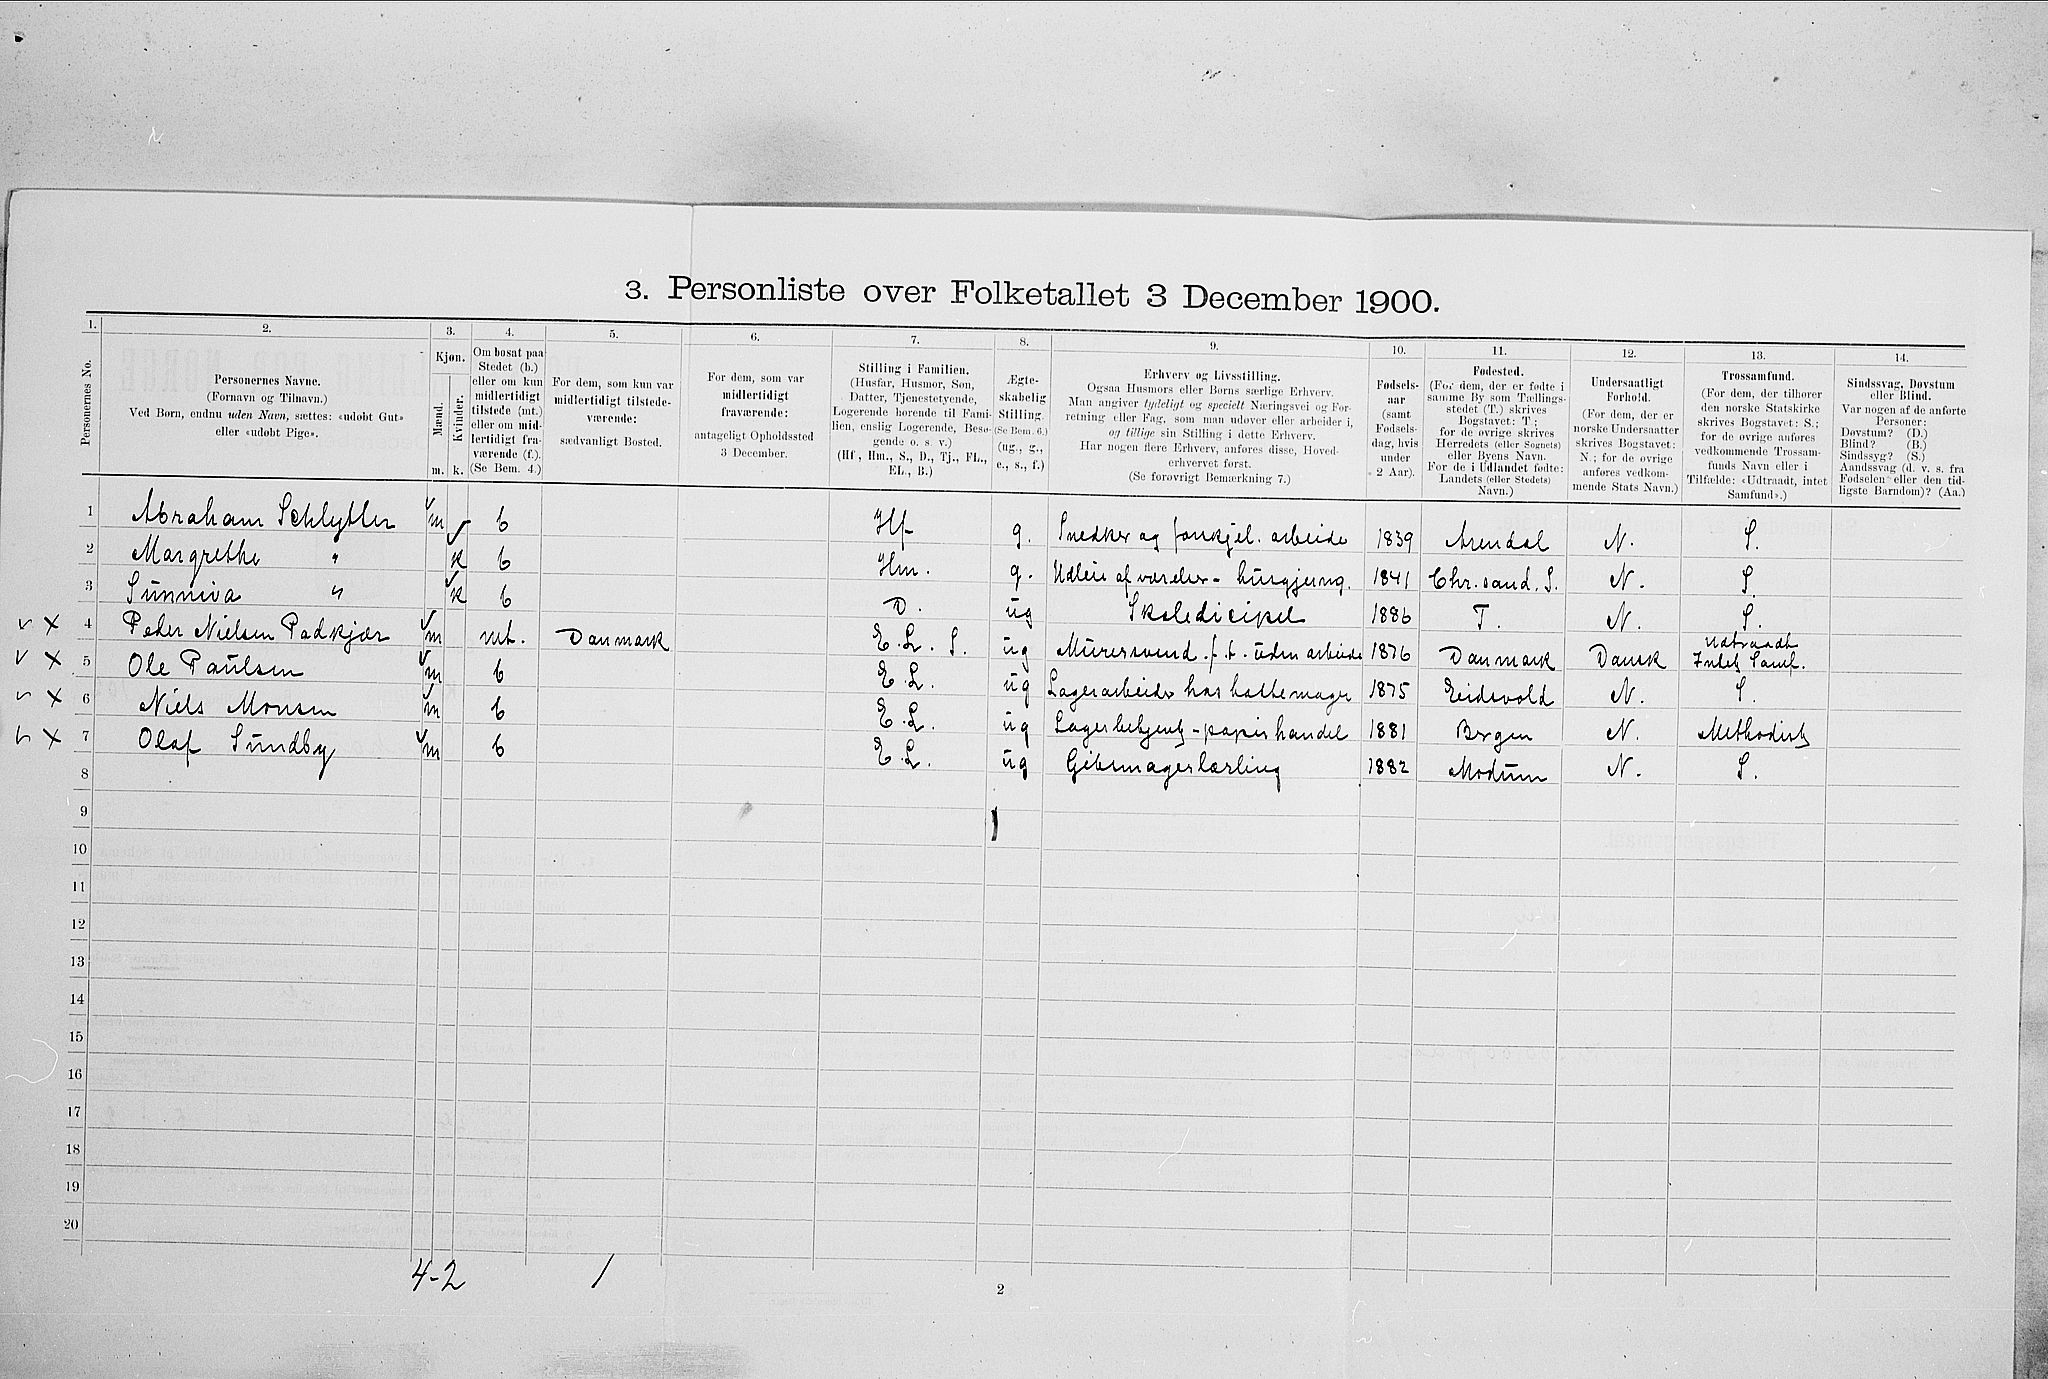 3. Personliste over Folketallet 3 December 1900.
1. 2. 3. 4. 5. 6. 7. 8. 9. 10. 11. 12. 13. 14.
Personernes No.
Personernes Navne.
(Fornavn og Tilnavn.)
Ved Børn, endnu uden Navn, sættes: «udøbt Gut»
eller «udøbt Pige».
Kjøn.
Mænd.
Kvinder.
m. k.
Om bosat paa
Stedet (b.)
eller om kun
midlertidigt
tilstede (mt.)
eller om mid-
lertidigt fra-
værende (f.).
(Se Bem. 4.)
For dem, som kun var
midlertidigt tilstede-
værende:
sædvanligt Bosted.
For dem, som var
midlertidigt
fraværende:
antageligt Opholdssted
3 December.
Stilling i Familien.
(Husfar, Husmor, Søn,
Datter, Tjenestetyende,
Logerende hørende til Fami-
lien, enslig Logerende, Besø-
gende o. s. v.)
(Hf, Hm., S., D., Tj., FL.,
EL., B.)
Ægte-
skabelig
Stilling.
(Se Bem. 6.)
(ug., g.,
e., s., f.)
Erhverv og Livsstilling.
Ogsaa Husmors eller Børns særlige Erhverv.
Man angiver tydeligt og specielt Næringsvei og For-
retning eller Fag, som man udøver eller arbeider i,
og tillige sin Stilling i dette Erhverv.
Har nogen flere Erhverv, anføres disse, Hoved-
erhvervet først.
(Se forøvrigt Bemærkning 7.)
Fødsels-
aar
(samt
Fødsels-
dag, hvis
under
2 Aar).
Fødested.
(For dem, der er fødte i
samme By som Tællings-
stedet (T.) skrives
Bogstavet: T;
for de øvrige skrives
Herredets (eller Sognets)
eller Byens Navn.
For de i Udlandet fødte:
Landets (eller Stedets)
Navn.)
Undersaatligt
Forhold.
(For dem, der er
norske Undersaatter
skrives Bogstavet:
N.; for de øvrige
anføres vedkom-
mende Stats Navn.)
Trossamfund.
(For dem, der tilhører
den norske Statskirke
skrives Bogstavet: S.;
for de øvrige anføres
vedkommende Trossam-
funds Navn eller i
Tilfælde: «Udtraadt, intet
Samfund».)
Sindssvag, Døvstum
eller Blind.
Var nogen af de anførte
Personer:
Døvstum? (D.)
Blind? (B.)
Sindssyg? (S.)
Aandssvag (d. v. s. fra
Fødselen eller den tid-
ligste Barndom)? (Aa.)
1 Abraham Schlytter m b Hf g. Snedker og forskjel. arbeide 1839 Arendal N. S.
2 Margrethe " k b Hm. g. Udleie af værelser - husgjerng. 1841 Chr.sand. S. N. S.
3 Sunniva " k b D. ug Skoledicipel 1886 T. N. S.
4 Peder Nielsen Padkjær m mt. Danmark E. L. S. ug Murersvend f. t. uden arbeide 1876 Danmark Dansk Udtraadt Intet Samf.
5 Ole Paulsen m b E. L. ug Lagerarbeider hos hattemager 1875 Eidsvold N. S.
6 Niels Monsen m b E. L. ug Lagerbetjent - papirhandel 1881 Bergen N. Methodist
7 Olaf Sundby m b E. L. ug Gibsmagerlærling 1882 Modum N. S.
8
9
10
11
12
13
14
15
16
17
18
19
20
4-2 1
2